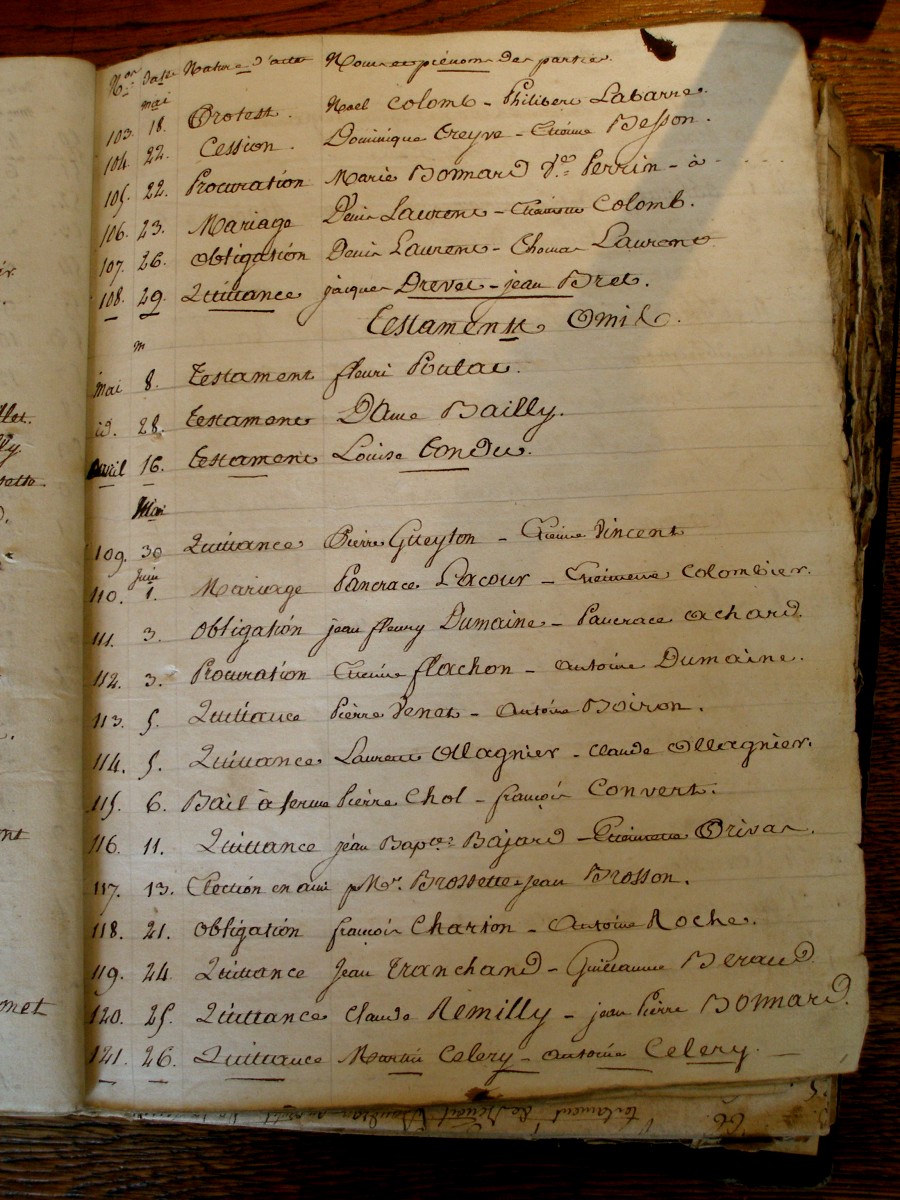 Nos Date Nature d'acte Noms et prénoms des parties
mai
103. 18. Protest. Noel Colomb - Philibert Labarre.
104. 22. Cession. Dominique Creyve - Etienne Besson.
105. 22. Procuration Marie Bonnard Ve. Perrin - à - - - -
106. 23. Mariage Denis Laurent - Etiennette Colomb.
107. 26. obligation Denis Laurent - Thomas Laurent
108. 29. Quittance jacques Drevet - jean Bret.
Testaments Omis.
m
mai 8. testament fleuri Poulat.
id. 28. testament Dame Bailly.
avril 16. testament Louise Tondu.
Mai
109. 30 Quittance Pierre Gueyton - Etienne Vincent
Juin
110. 1. Mariage Pancrace Lacour - Etiennette Colombier.
111. 3. obligation jean fleury Dumaine - Pancrace Achard.
112. 3. Procuration Etienne flachon - antoine Dumaine.
113. 5. Quittance Pierre Venet - Antoine Boiron.
114. 5. Quittance Laurent Ollagnier - Claude Ollagnier.
115. 6. Bail à ferme Pierre Chol - françois Convert.
116. 11. Quittance jean Bapte. Bajard - Etiennette Orivat.
117. 13. Election en ami p Mr. Brossette - jean Brosson.
118. 21. obligation françois Charton - Antoine Roche.
119. 24. Quittance Jean Tranchand - Guillaume Beraud
120. 25. Quittance Claude Remilly - jean Pierre Bonnard.
121. 26. Quittance Martin Celery - antoine Celery.